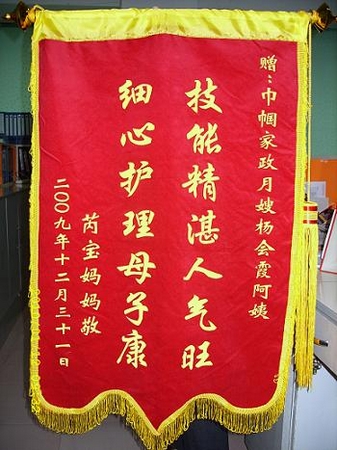 赠：巾帼家政月嫂杨会霞阿姨
技能精湛人气旺
细心护理母子康
芮宝妈妈敬
二〇〇九年十二月三十一日